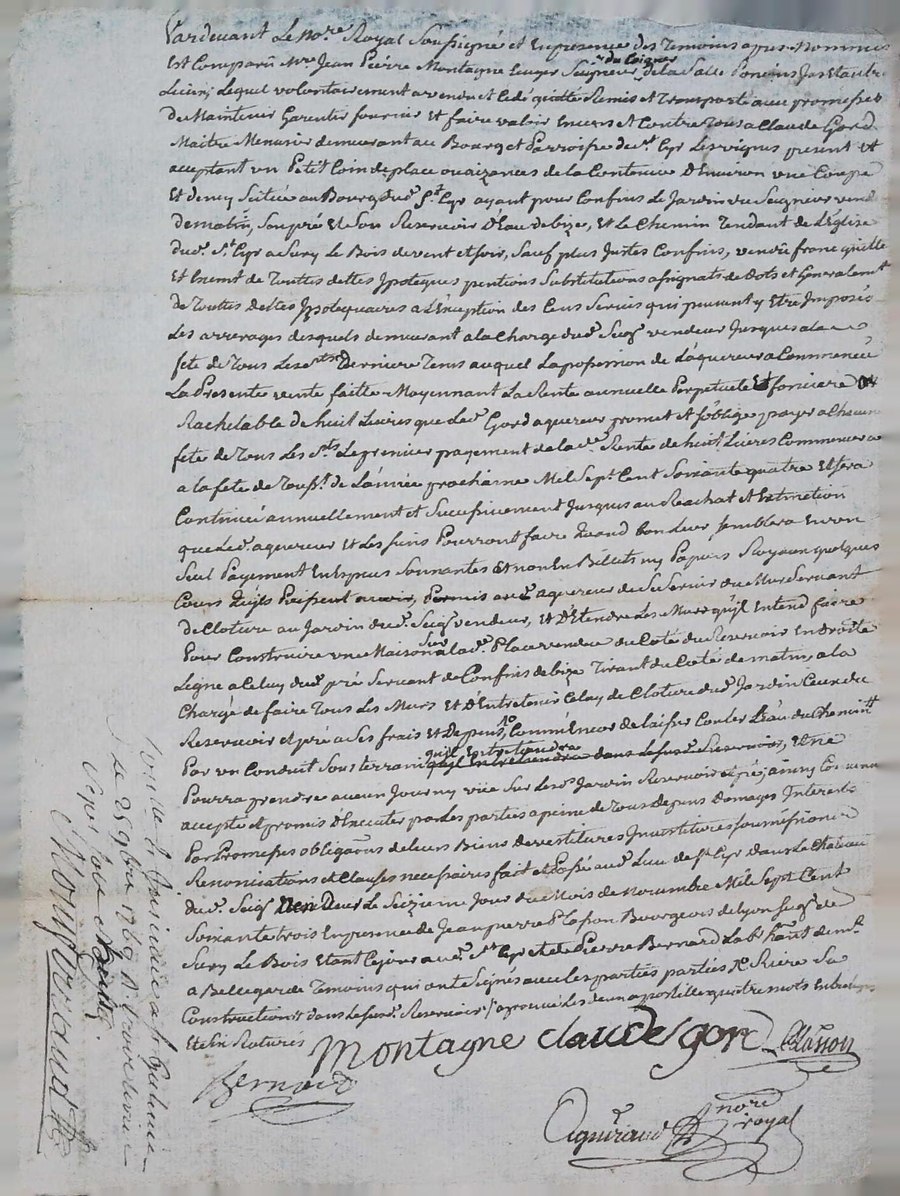 Pardevant Le No.re Royal Soussigné et En presence des Temoins apres Nommes
Est Comparû M.re Jean Pierre Montagne Ecuyer Seigneur du Coigner de la Salle Poncins Jas et autre
Lieux, Lequel volontairement a vendu et Cedé quitté Remis et Transporté avec promesses
de Maintenir Garentir fournir et faire valoir Envers et Contre Tous a Claude Gord
Maitre Menusier demeurant au Bourg et Parroisse de S.t Cyr Les vignes present et
aceptant un Petit Coin de place ou aizances de la Contenue D'Environ une Coupe
Et demy Scituée au Bourg dud. S.t Cyr ayant pour Confins Le Jardin du Seigneur vend.
de matin, Son pré Et Son Reservoir D'Eau de bize, Et Le Chemin Tendant de L'Eglise
dud. S.t Cyr a Sury Le Bois de vent et soir, Sauf plus Justes Confins, vendû franc quitte
Et Exempt de Toutes dettes Ypoteques pentions Substitutions asignats de Dots et Generalem.t
de Toutes dettes Ypotequaires a L'Exception des Cens Servis qui peuvent y Etre Imposés
Les arrerages desquels demeurant a la Charge dud. Seig.r vendeur Jusques a la
fete de Tous Les S.ts Derniere Tems auquel La possession de L'aquereur a Commencé
La Presente vente faitte Moyennant La Rente annuelle Perpetuelle Et fonciere
Rachetable de huit Livres que Led. Gord aquereur promet Et s'oblige payer a Chacune
fete de Tous Les S.ts Le premier payement de lad. Rente de huit Livres Commencera
a la fete de Tous S.ts de L'année prochaine Mil Sept Cent Soixante quatre Et sera
Continué annuellement et Successivement Jusques au Reachat Et Extinction
que Led. aquereur Et Les Siens Pourront faire quand bon Leur semblera En un
Seul Payement En Especes Sonnantes Et non En Billets ny Papiers Royaux quelques
Cours qu'ils Puissent avoir, Permis aud. aquereur de Se Servir du Mur Servant
de Cloture au Jardin dud. Seig.r vendeur, et D'Etendre Les Murs qu'il Entend faire
Pour Construire une Maison Sur lad. Place vendue du Coté du Reservoir En droite
Ligne a Celuy dud. pré Servant de Confins de bize Tirant du Coté de matin, a la
Charge de faire Tous Les Murs Et D'Entretenir Celuy de Cloture dud. Jardin Ceux du
Reservoir et pré a Ses frais Et Depens, Comme Encor de laisser Couler L'Eau du Chemin
Par un Conduit Sousterrain qu'il Entretiendra dans Led. Reservoir, Et ne
Pourra prendre aucun Jour ny viüe Sur Led. Jardin Reservoir et pré; ainsy Convenu
accepté et promis D'Executer par Les parties a peine de Tous Depens Domages Interets
Par Promesses obligations de leurs Biens devestitures Investitures Soumissions
Renonciations et Clauses necessaires fait et Passé aud. Lieu de S.t Cyr Dans Le Chateau
dud. Seig.r Vendeur Le Seizieme Jour du Mois de Novembre Mil Sept Cent
Soixante trois En presence de Jean pierre Lasson Bourgeois de Lyon Seig.r de
Sury Le Bois Etant Ce jour aud. S.t Cyr et de Pierre Bernard Lab.r
a Bellegarde Temoins qui ont Signés avec les parties
Construction dans Led. Reservoir approuvé Led. un apostille quatre mots
Et Six Ratures
Montagne Claude gord Lasson
Bernard
Aguiraud nore
royal
le 25 9bre 1763